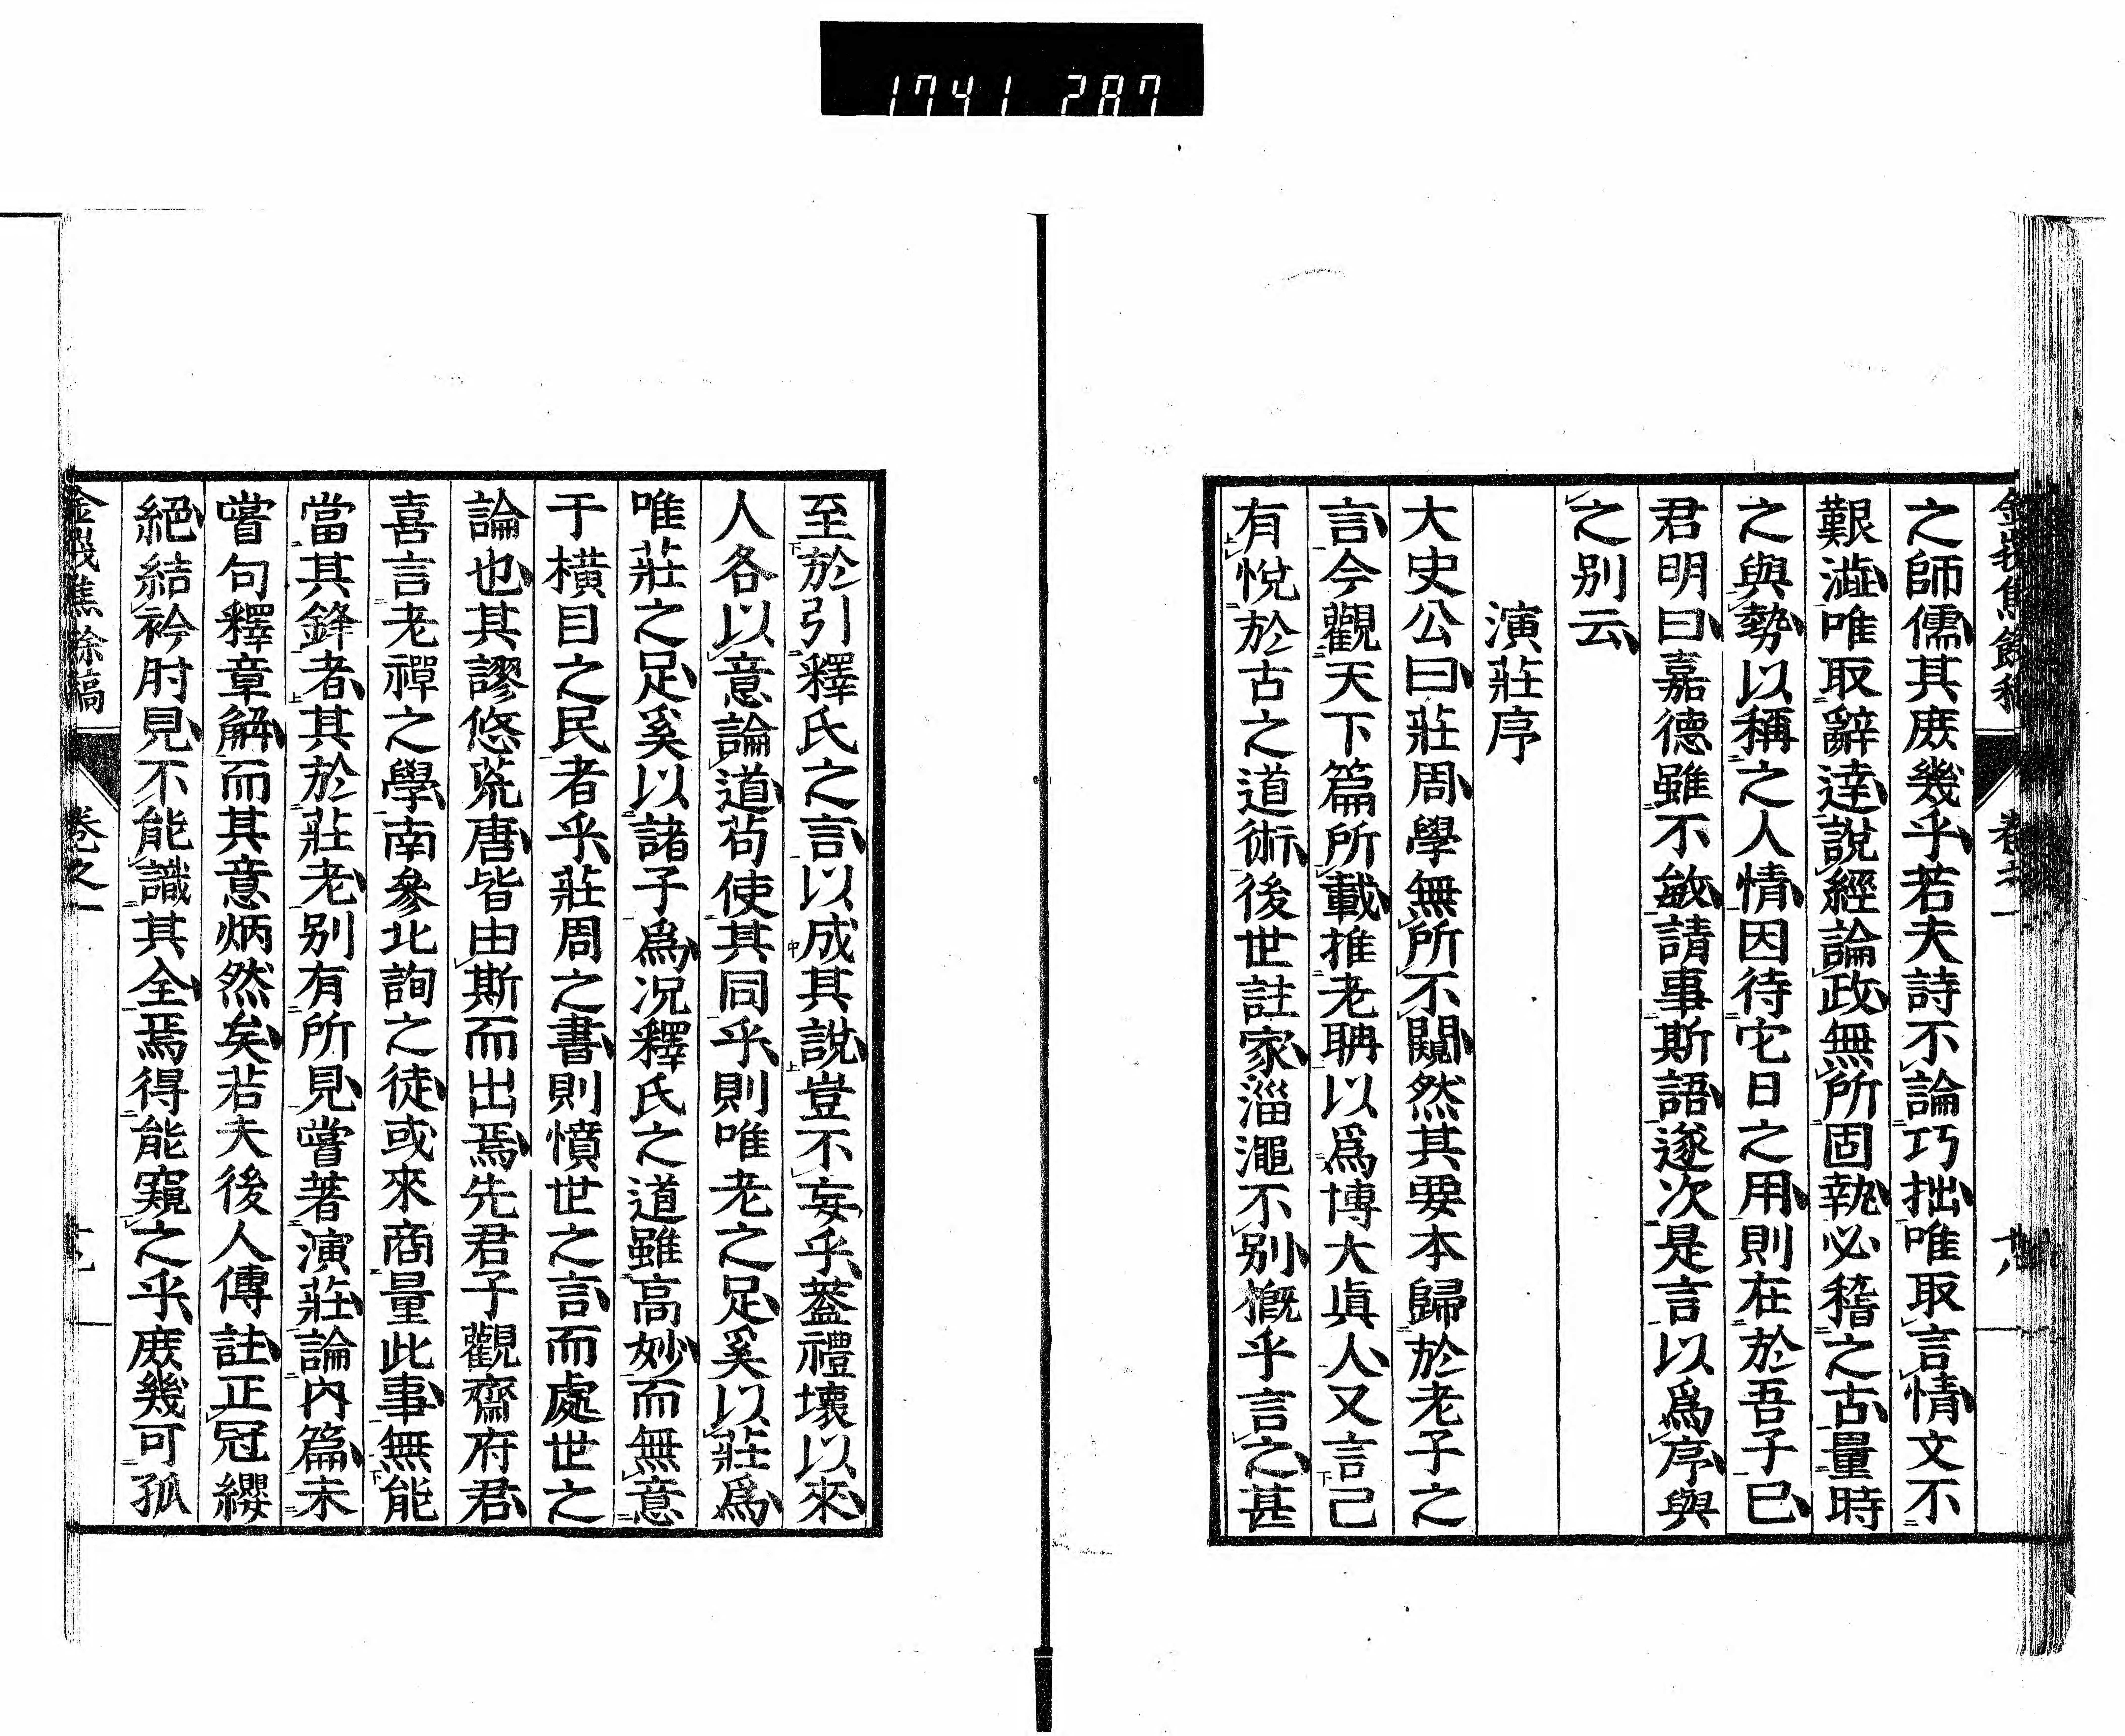 1741 287
之師儒其庶幾乎若夫詩不論巧拙唯取言情文不
艱澁唯取辭達説經論政無所固執必稽之古量時
之與勢以稱之人情因待它日之用則在於吾子已
君明曰嘉德雖不敏請事斯語遂次是言以爲序與
之別云
演莊序
大史公曰莊周學無所不闚然其要本歸於老子之
言今觀天下篇所載推老聃以爲博大眞人又言己
有悅於古之道術後世註家淄澠不別概乎言之甚
至於引釋氏之言以成其説豈不妄乎蓋禮壞以來
人各以意論道苟使其同乎則唯老之足奚以莊爲
唯莊之足奚以諸子爲况釋氏之道雖高妙而無意
于橫目之民者乎莊周之書則憤世之言而處世之
論也其謬悠荒唐皆由斯而出焉先君子觀齋府君
喜言老禪之學南參北詢之徒或來商量此事無能
當其鋒者其於莊老別有所見嘗著演莊論內篇未
嘗句釋章解而其意炳然矣若夫後人傳註正冠纓
絕結衿肘見不能識其全焉得能窺之乎庶幾可孤
焦餘稿 卷之一